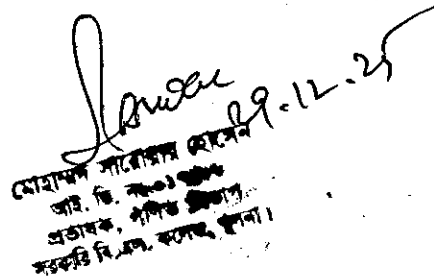 29.12.25
মোহাম্মদ সারোয়ার হোসেন
আই. ডি. নং-০১
প্রভাষক, গণিত বিভাগ
সরকারি বি.এল. কলেজ, খুলনা।